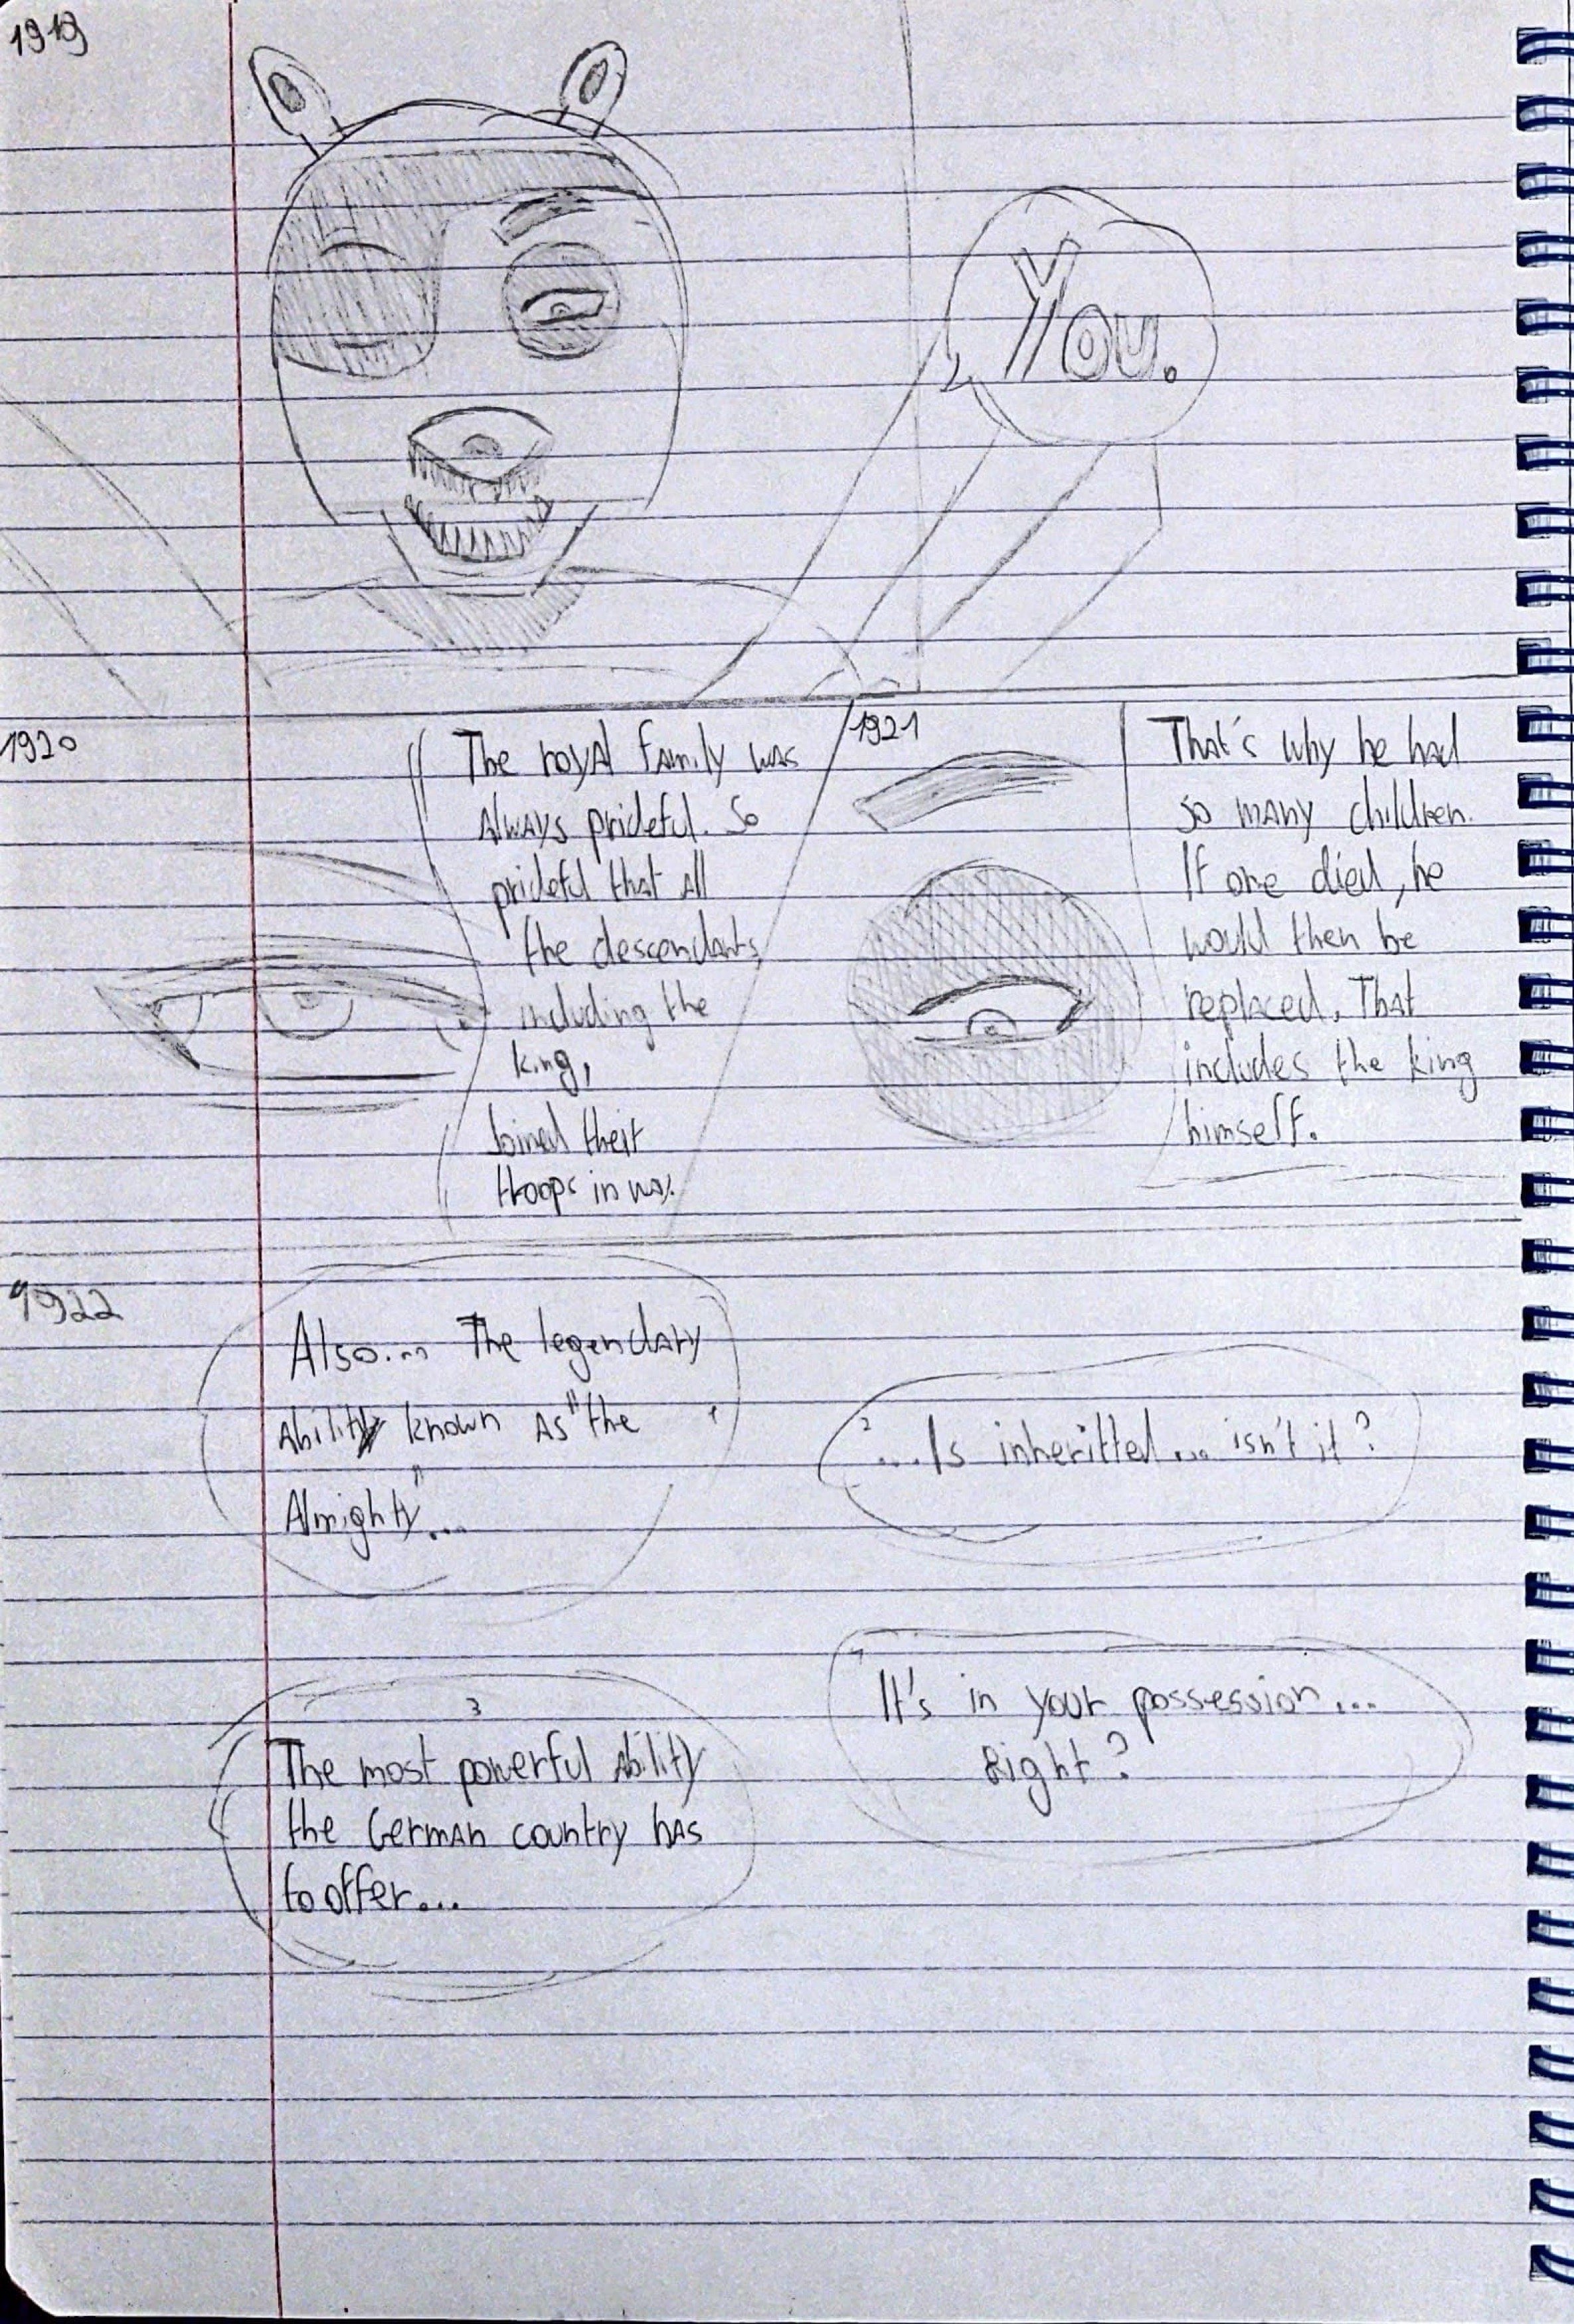 1919
You.
1920
The royal family was
always prideful. So
prideful that all
the descendants,
including the
king,
joined their
troops in war.
1921
That's why he had
so many children.
If one died, he
would then be
replaced. That
includes the king
himself.
1922
1
Also... The legendary
ability known as "the
Almighty"...
2
...Is inheritted... isn't it?
3
The most powerful ability
the German country has
to offer...
4
It's in your possession...
Right?